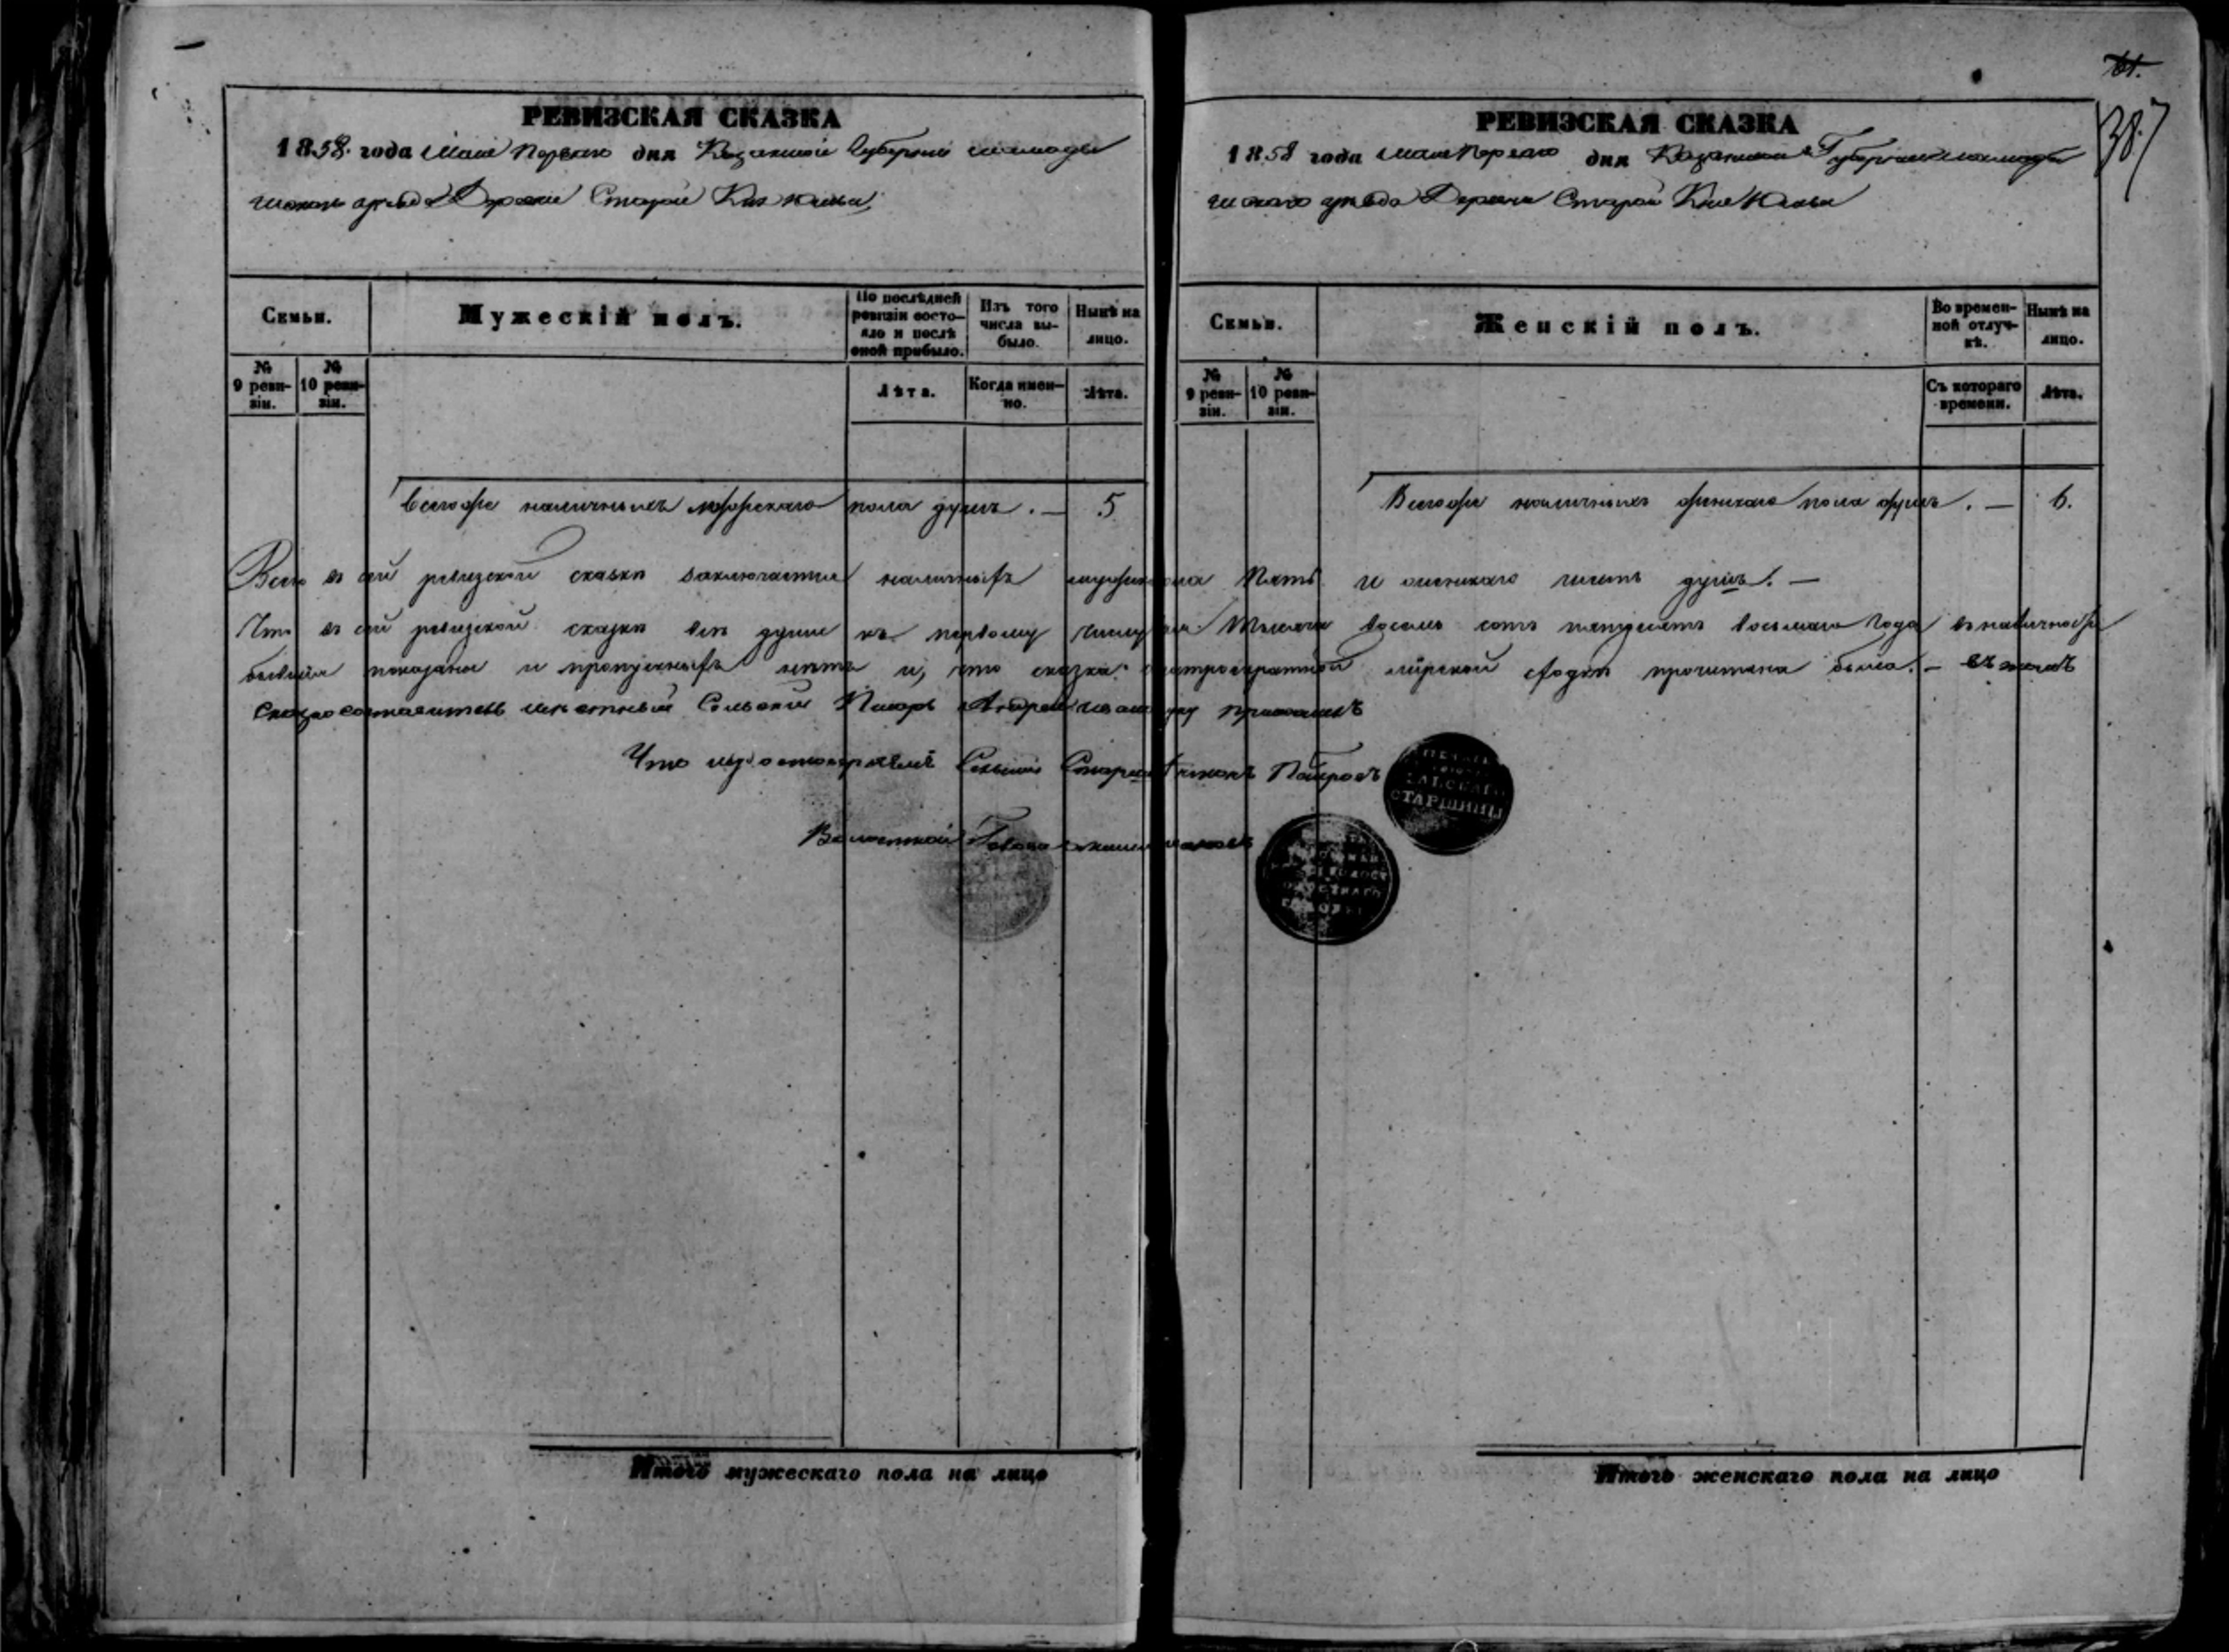 РЕВИЗСКАЯ СКАЗКА
1858. года Маия Перваго дня Казанской Губернии Мамады
шскаго уѣзда Деревни Старой Кня Юмьи
Семьи.
Мужескій полъ.
По послѣдней ревизіи состояло и послѣ оной прибыло.
Изъ того числа выбыло.
Нынѣ на лицо.
№ 9 ревизіи.
№ 10 ревизіи.
Лѣта.
Когда именно.
Лѣта.
Всего же наличныхъ мужескаго пола душъ . — 5
61.
387
РЕВИЗСКАЯ СКАЗКА
1858 года Маия Перваго дня Казанской Губернии Мамады
шскаго уѣзда Деревни Старой Кня Юмьи
Семьи.
Женскій полъ.
Во временной отлучкѣ.
Нынѣ на лицо.
№ 9 ревизіи.
№ 10 ревизіи.
Съ котораго времени.
Лѣта.
Всего же наличныхъ женскаго пола душъ . — 6.
Всего въ сей ревизской сказкѣ заключается наличныхъ мужеска пола Пять и женскаго шесть душъ. —
Что въ сей ревизской сказкѣ всѣ души къ первому числу Тысяча восемь сотъ пятдесятъ восьмаго года въ наличности
бывшия показаны и пропускныхъ нѣтъ и, что сказка мирской сходкѣ прочитана была. —
Сказкосоставитель мѣстный Сельский Писарь Андрей
Что удостовѣряемъ Сельский Старшина
Волостной Голова
СТАРШИНЫ
Итого мужескаго пола на лицо
Итого женскаго пола на лицо